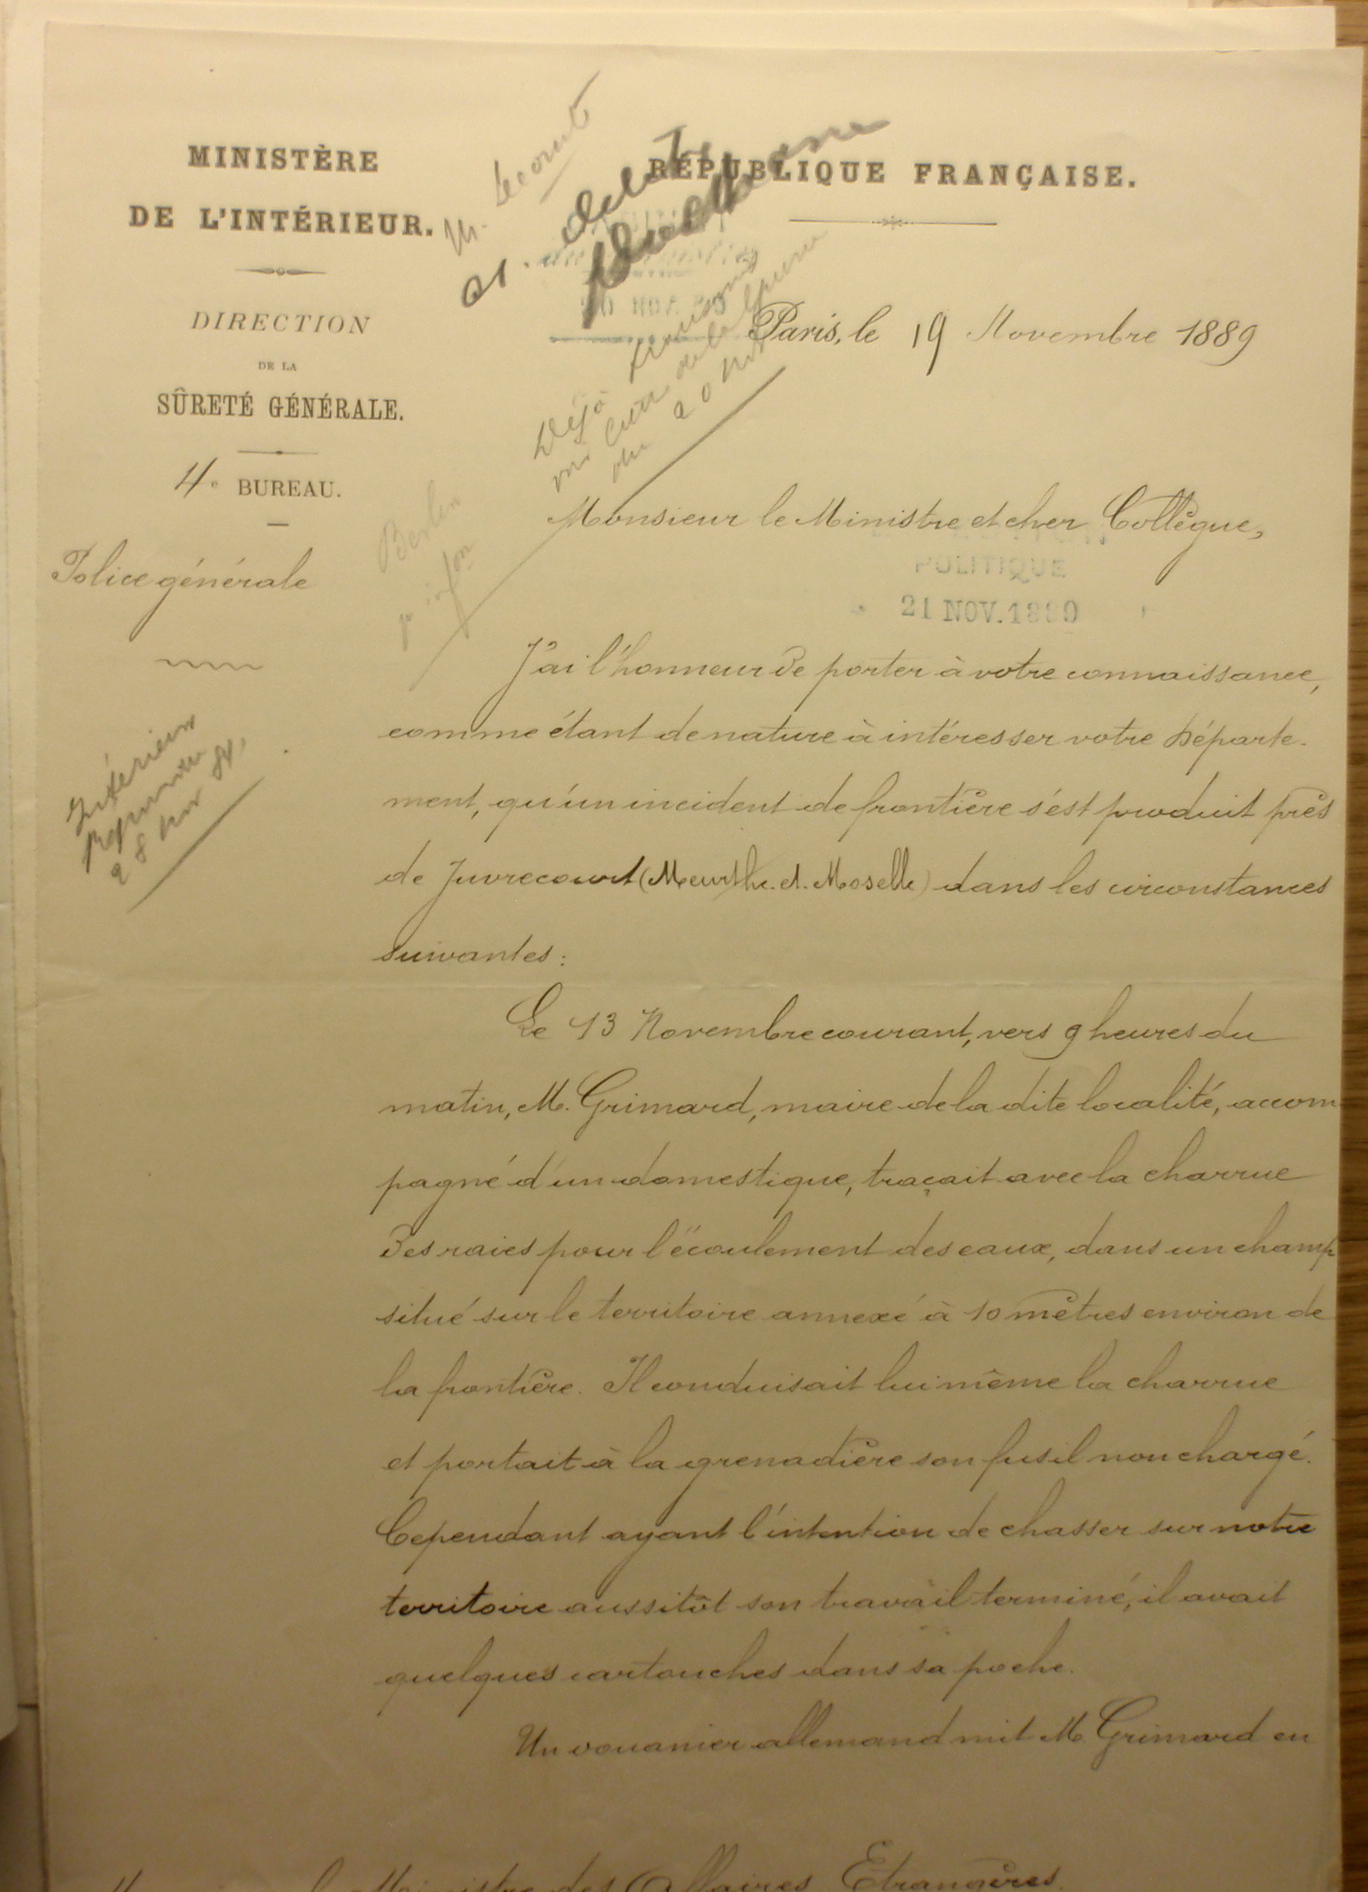 MINISTÈRE
DE L'INTÉRIEUR.
DIRECTION
DE LA
SÛRETÉ GÉNÉRALE.
4e BUREAU.
Police générale
RÉPUBLIQUE FRANÇAISE.
M. Lecomte
Paris, le 19 Novembre 1889
Déjà
du 20 Nov
Berlin
Monsieur le Ministre et cher Collègue,
POLITIQUE
21 NOV. 1889
Intérieur
28 nov 89
J'ai l'honneur de porter à votre connaissance,
comme étant de nature à intéresser votre Départe-
ment, qu'un incident de frontière s'est produit près
de Juvrecourt (Meurthe-et-Moselle) dans les circonstances
suivantes :
Le 13 Novembre courant, vers 9 heures du
matin, M. Grimard, maire de la dite localité, accom
pagné d'un domestique, traçait avec la charrue
des raies pour l'écoulement des eaux, dans un champ
situé sur le territoire annexé à 10 mètres environ de
la frontière. Il conduisait lui même la charrue
et portait à la grenadière son fusil non chargé.
Cependant ayant l'intention de chasser sur notre
territoire aussitôt son travail terminé, il avait
quelques cartouches dans sa poche.
Un douanier allemand mit M. Grimard en
Ministre des Affaires Etrangères